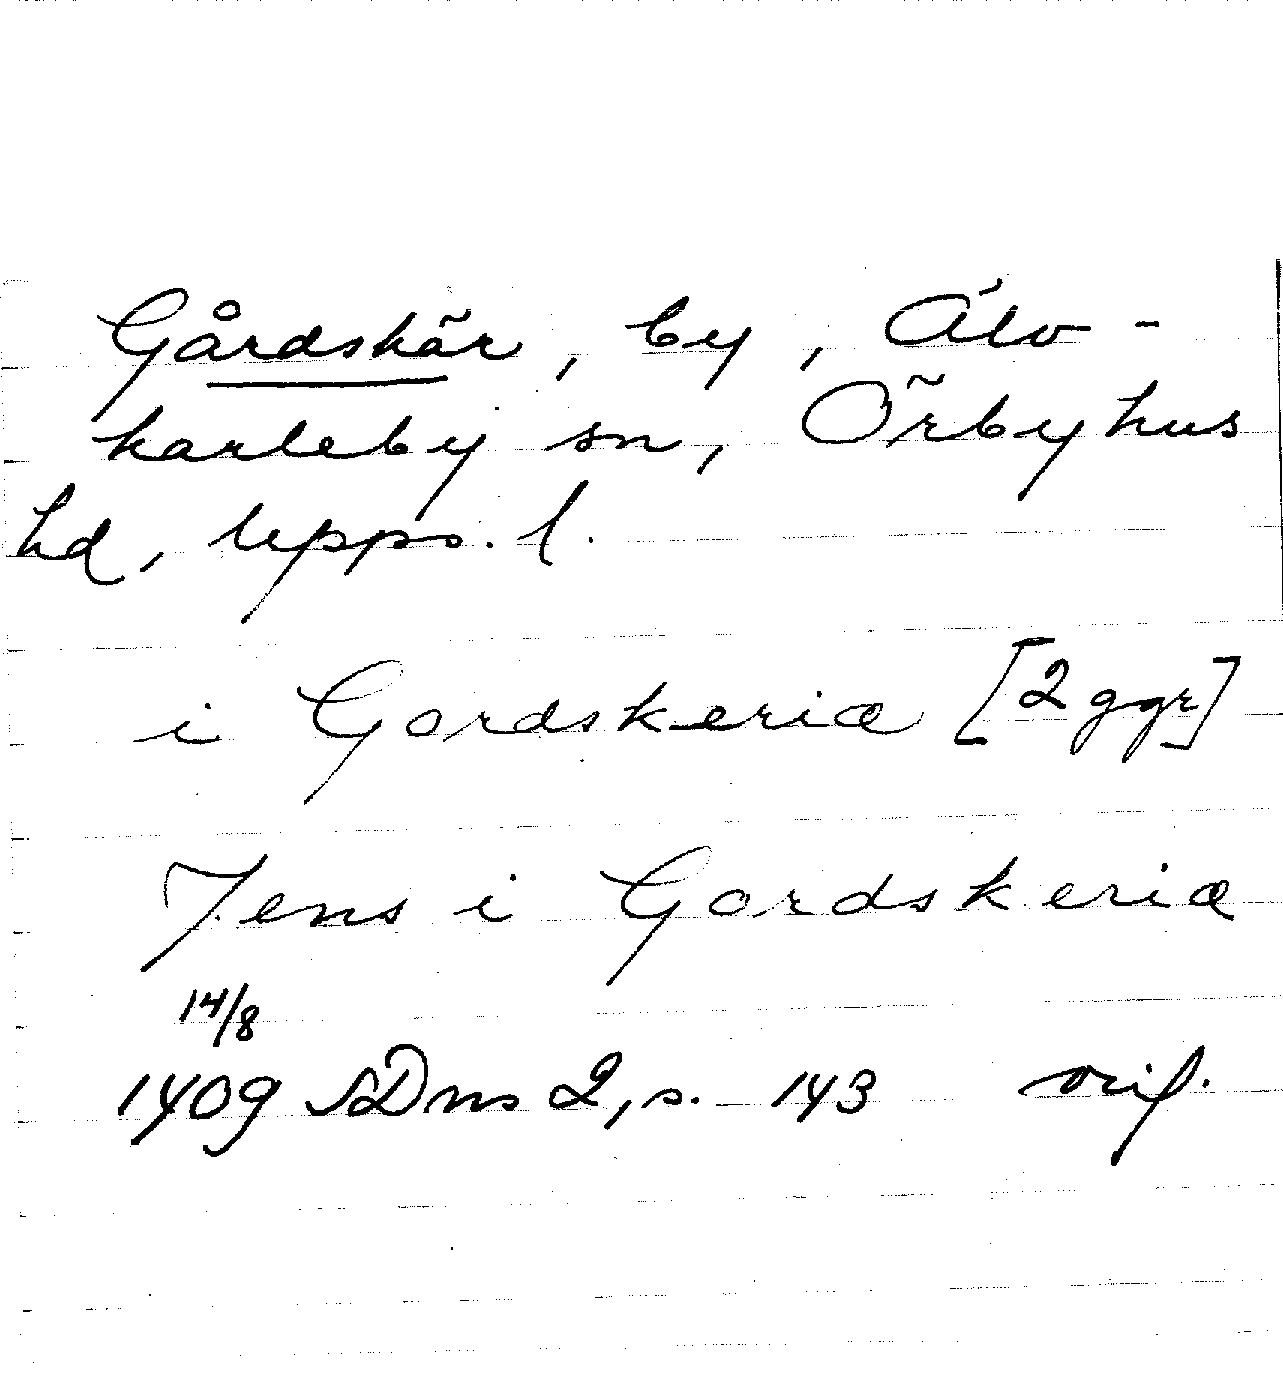 Gårdskär, by, Älv-
karleby sn, Örbyhus
hd, Upps. l.
i Gordskeriæ [2 ggr]
Jens i Gordskeriæ
14/8
1409 SDns 2, s. 143 orig.